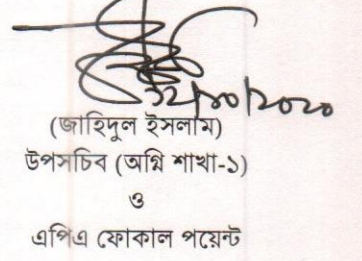 ১২/১০/২০২০
(জাহিদুল ইসলাম)
উপসচিব (অগ্নি শাখা-১)
ও
এপিএ ফোকাল পয়েন্ট